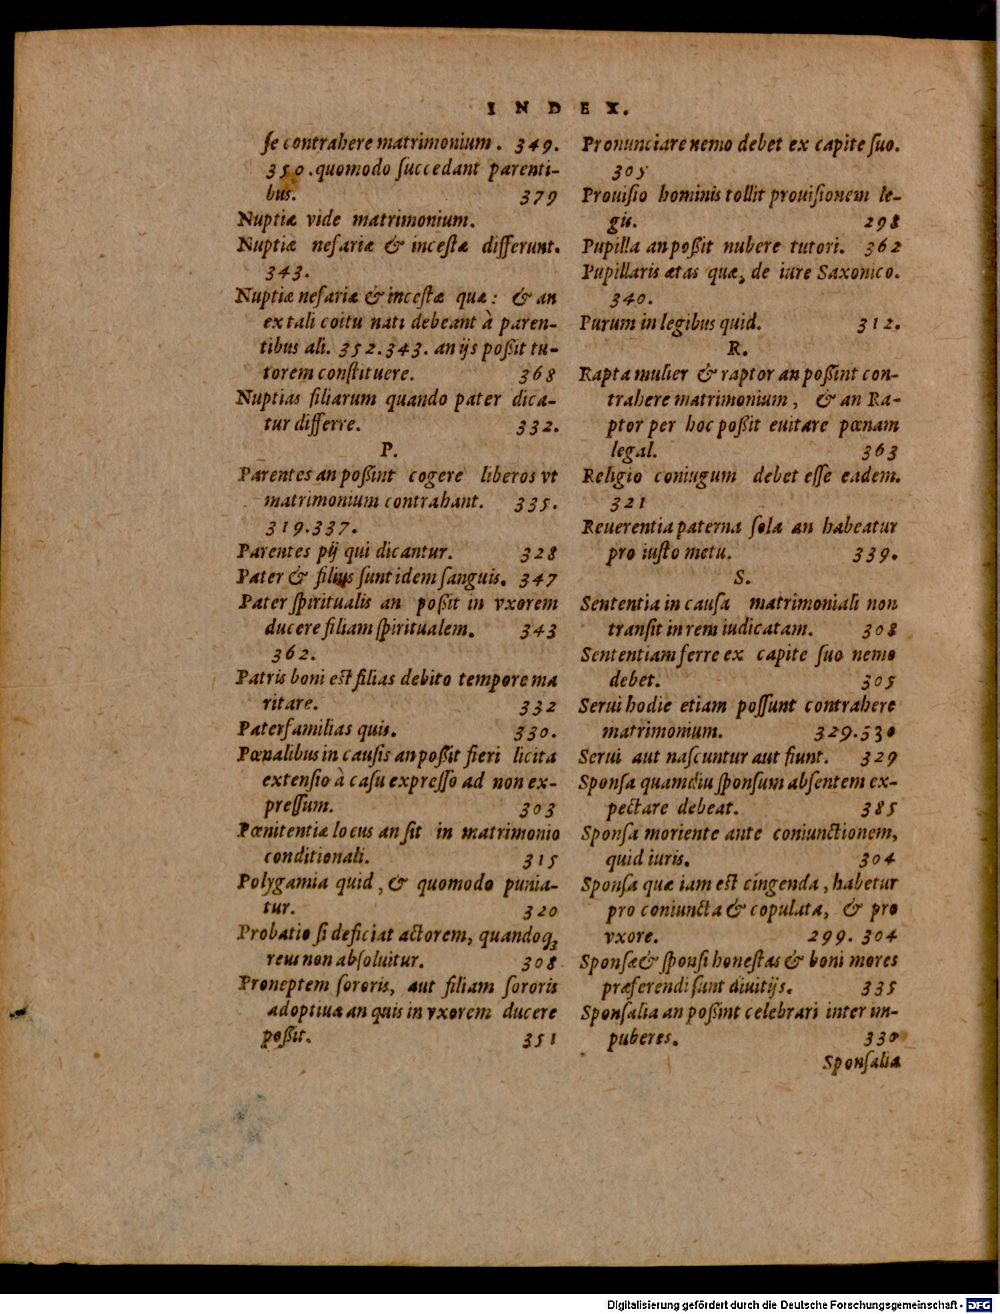 INDEX.
ſe contrahere matrimonium. 349.
350. quomodo ſuccedant parenti-
bus. 379
Nuptiæ vide matrimonium.
Nuptiæ nefariæ & inceſtæ differunt.
343.
Nuptiæ nefariæ & inceſtæ quæ: & an
ex tali coitu nati debeant à paren-
tibus ali. 352.343. an ijs poßit tu-
torem conſtituere. 368
Nuptias filiarum quando pater dica-
tur differre. 332.
P.
Parentes an poßint cogere liberos vt
matrimonium contrahant. 335.
319.337.
Parentes pij qui dicantur. 328
Pater & filius ſunt idem ſanguis. 347
Pater ſpiritualis an poßit in vxorem
ducere filiam ſpiritualem. 343
362.
Patris boni eſt filias debito tempore ma
ritare. 332
Paterfamilias quis. 330.
Pœnalibus in cauſis an poßit fieri licita
extenſio à caſu expreſſo ad non ex-
preſſum. 303
Pœnitentiæ locus an ſit in matrimonio
conditionali. 315
Polygamia quid, & quomodo punia-
tur. 320
Probatio ſi deficiat actorem, quandoq;
reus non abſoluitur. 308
Proneptem ſororis, aut filiam ſororis
adoptiuæ an quis in vxorem ducere
poßit. 351
Pronunciare nemo debet ex capite ſuo.
305
Prouiſio hominis tollit prouiſionem le-
gis. 298
Pupilla an poßit nubere tutori. 362
Pupillaris ætas quæ, de iure Saxonico.
340.
Purum in legibus quid. 312.
R.
Rapta mulier & raptor an poßint con-
trahere matrimonium, & an Ra-
ptor per hoc poßit euitare pœnam
legal. 363
Religio coniugum debet eſſe eadem.
321
Reuerentia paterna ſola an habeatur
pro iuſto metu. 339.
S.
Sententia in cauſa matrimoniali non
tranſit in rem iudicatam. 308
Sententiam ferre ex capite ſuo nemo
debet. 305
Serui hodie etiam poſſunt contrahere
matrimonium. 329.330
Serui aut naſcuntur aut fiunt. 329
Sponſa quamdiu ſponſum abſentem ex-
pectare debeat. 385
Sponſa moriente ante coniunctionem,
quid iuris. 304
Sponſa quæ iam eſt cingenda, habetur
pro coniuncta & copulata, & pro
vxore. 299. 304
Sponſæ & ſponſi honeſtas & boni mores
præferendi ſunt diuitijs. 335
Sponſalia an poßint celebrari inter im-
puberes. 330
Sponſalia
Digitalisierung gefördert durch die Deutsche Forschungsgemeinschaft - DFG